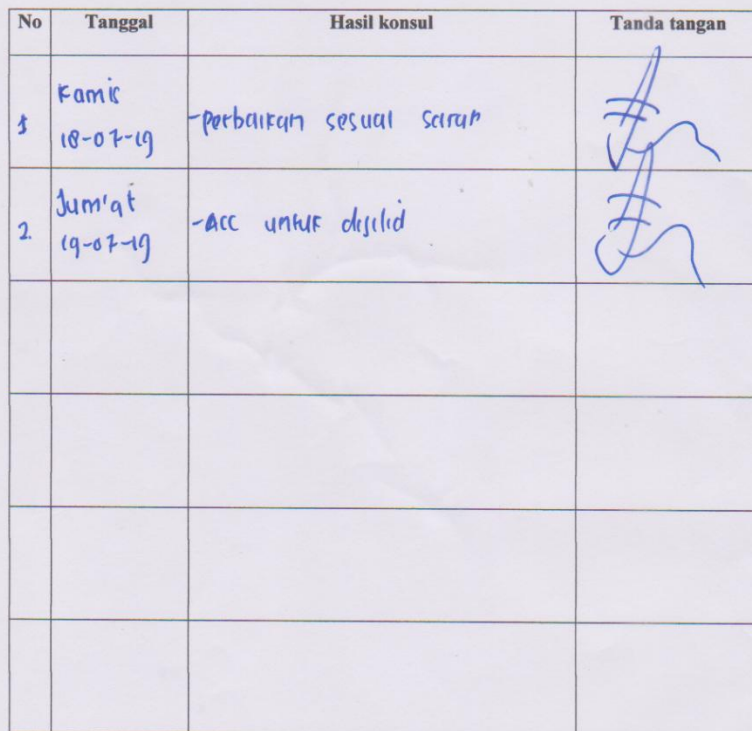 No Tanggal Hasil konsul Tanda tangan
1 Kamis
18-07-19 -perbaikan sesuai saran
2. Jum'at
19-07-19 -Acc untuk dijilid